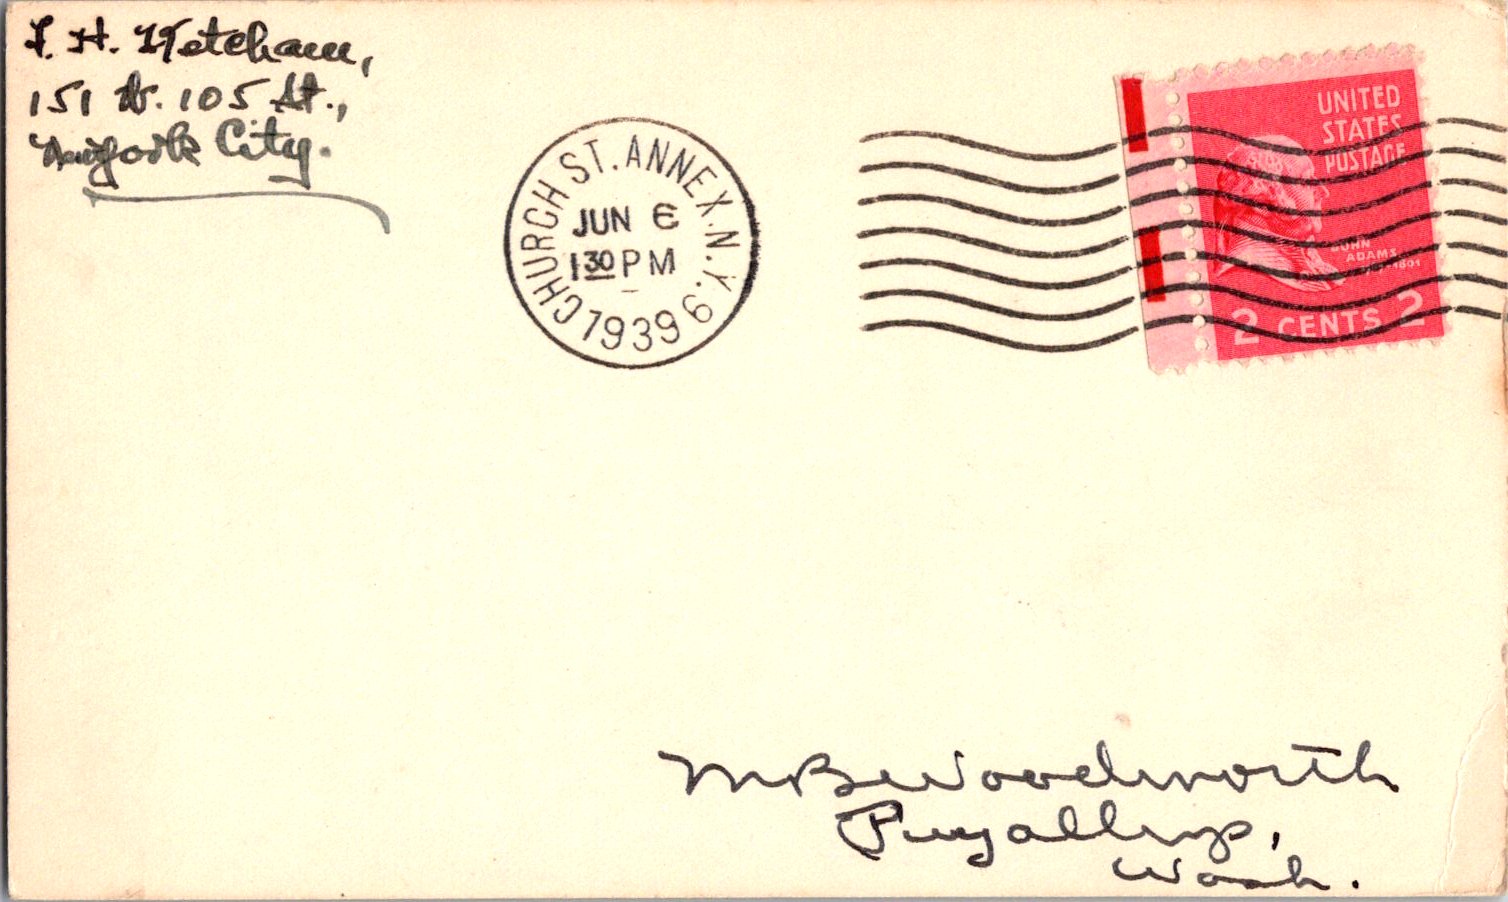 T. H. Ketcham,
151 W. 105 St.,
New York City.
CHURCH ST. ANNEX. N.Y. 6
JUN 6
1 30 PM
1939
UNITED
STATES
POSTAGE
JOHN
ADAMS
1801
2 CENTS 2
M B Woodworth
Puyallup,
Wash.